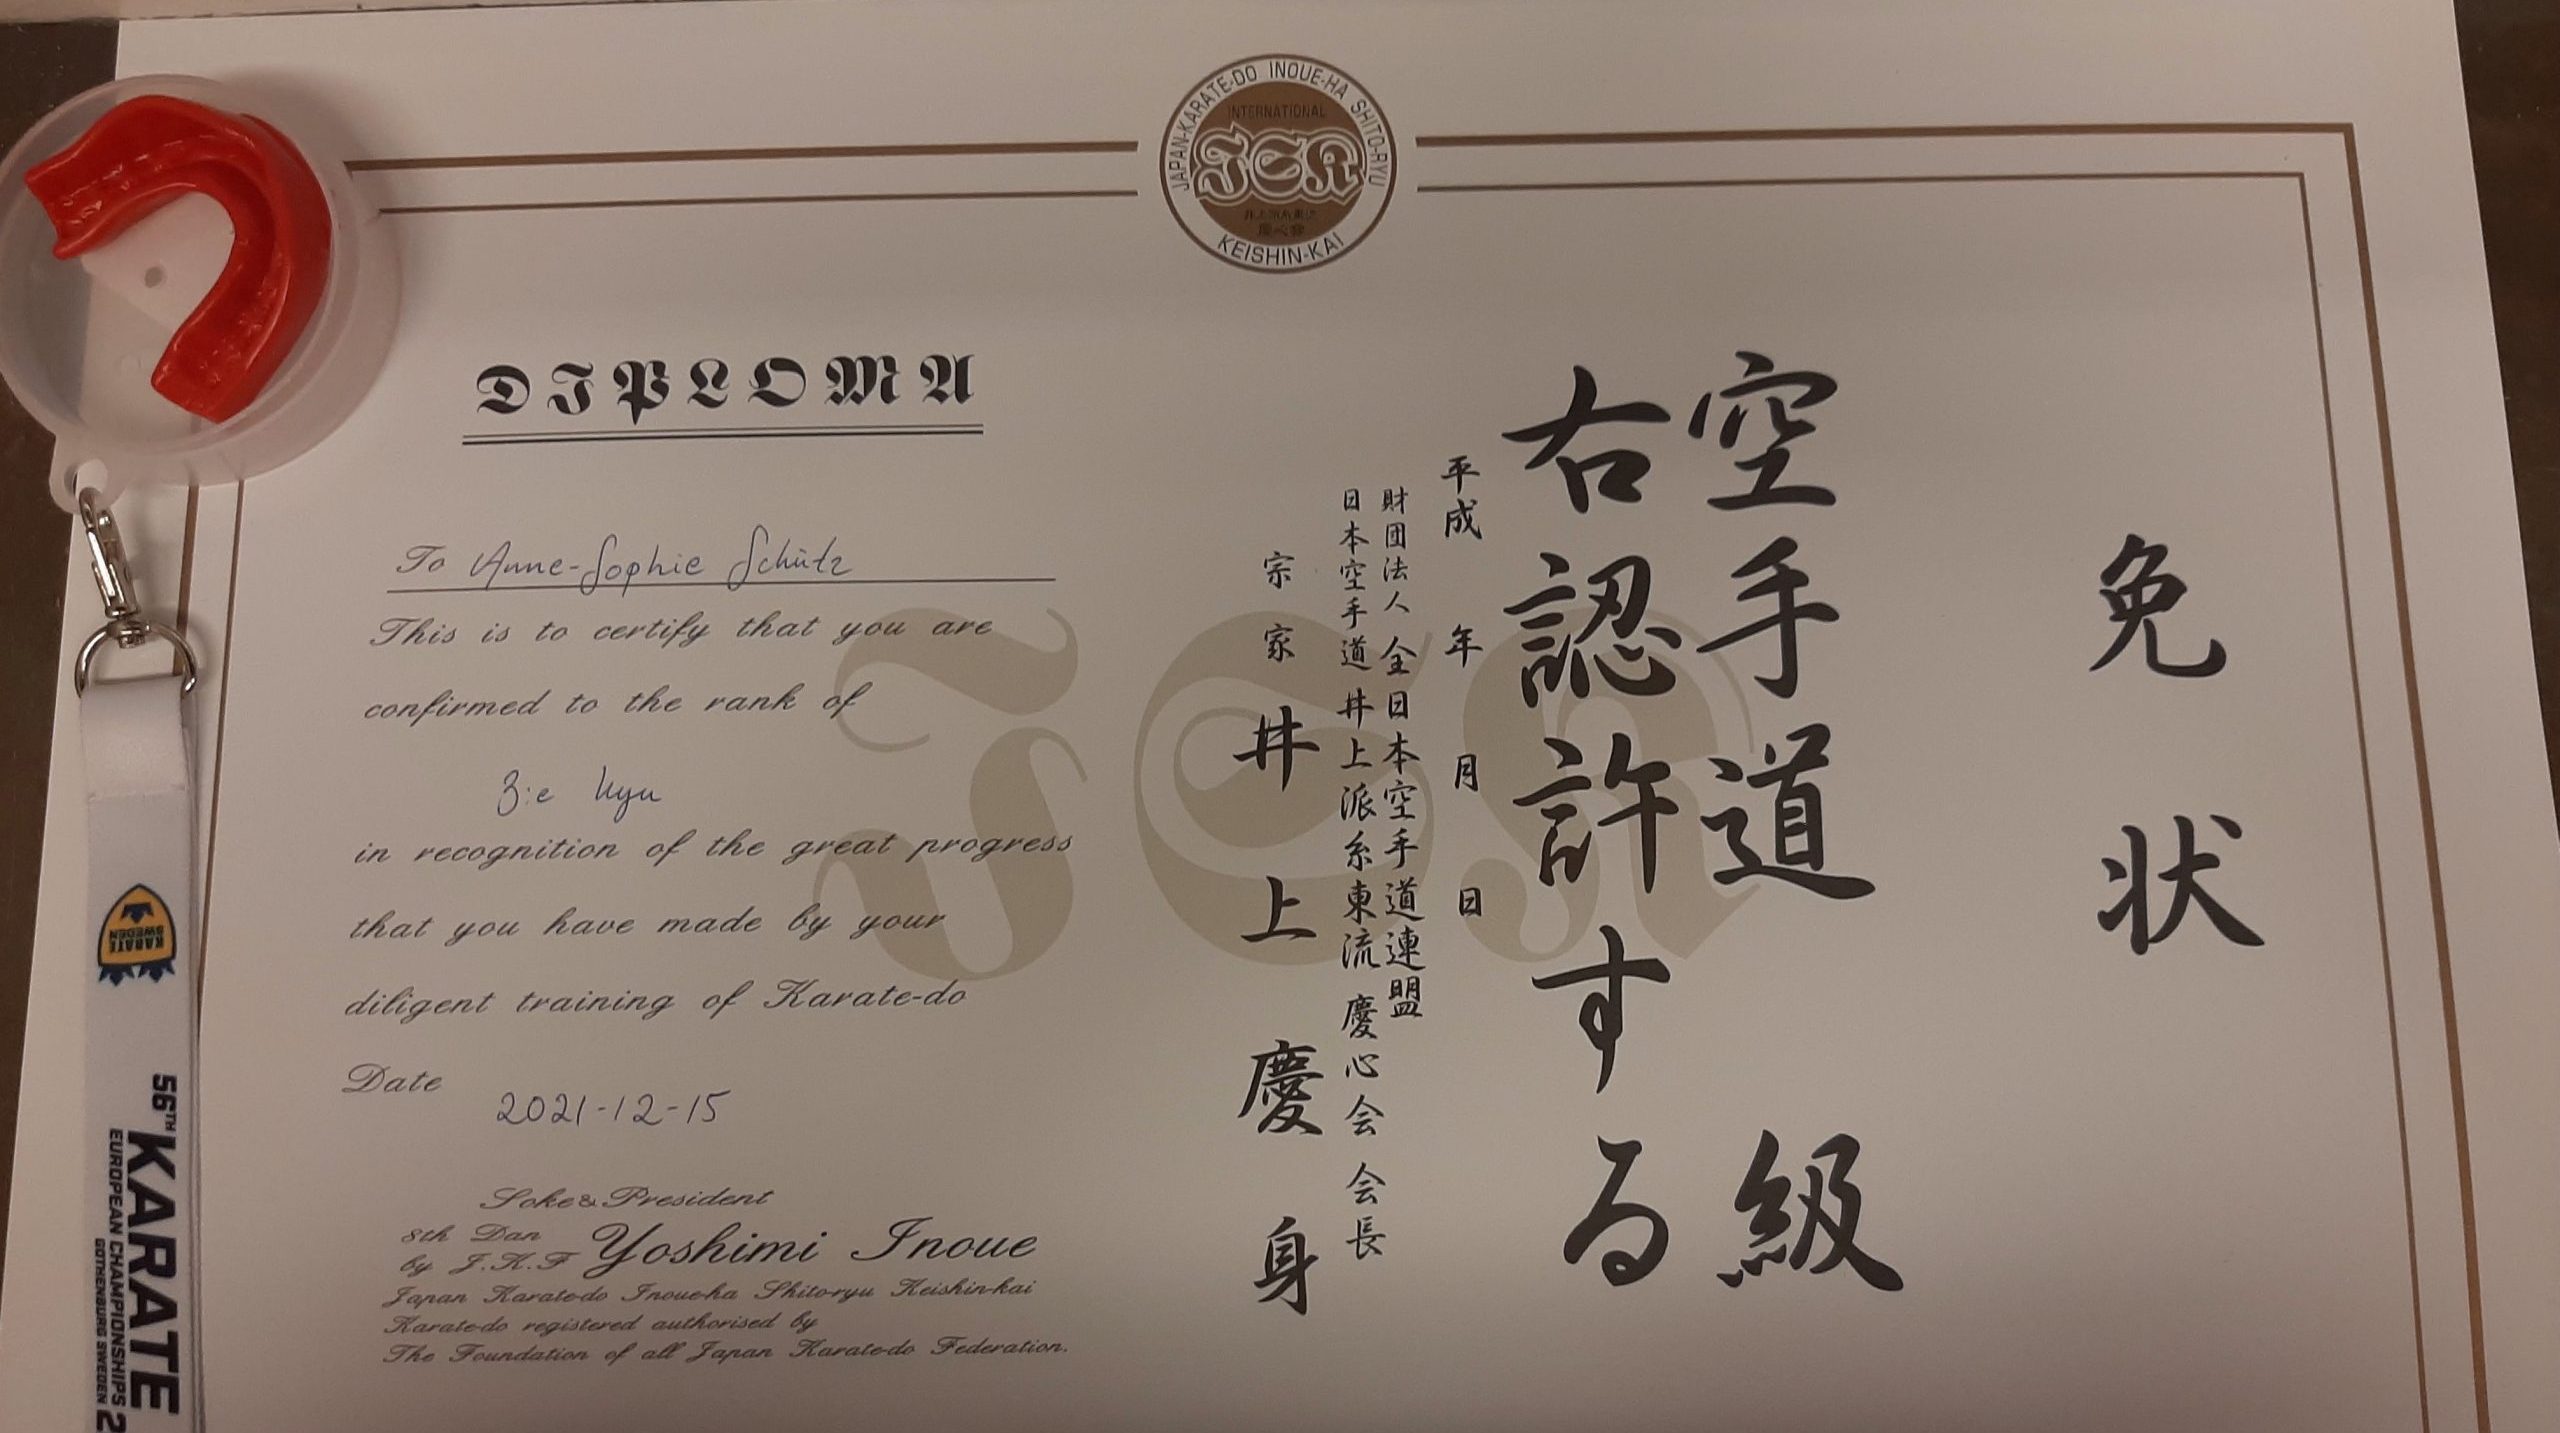 JAPAN-KARATE-DO INOUE-HA SHITO-RYU
INTERNATIONAL
ISK
KEISHIN-KAI
DIPLOMA
To Anne-Sophie Schütz
This is to certify that you are
confirmed to the rank of
3:e kyu
in recognition of the great progress
that you have made by your
diligent training of Karate-do
Date
2021-12-15
Soke & President
8th Dan
by J.K.F Yoshimi Inoue
Japan Karate-do Inoue-ha Shito-ryu Keishin-kai
Karate-do registered authorised by
The Foundation of all Japan Karate-do Federation.
免状
空手道 級
右認許する
平成 年 月 日
財団法人 全日本空手道連盟
日本空手道井上派糸東流慶心会 会長
宗家 井上慶身
ISK
KARATE
SWEDEN
56TH KARATE
EUROPEAN CHAMPIONSHIPS
GOTHENBURG SWEDEN